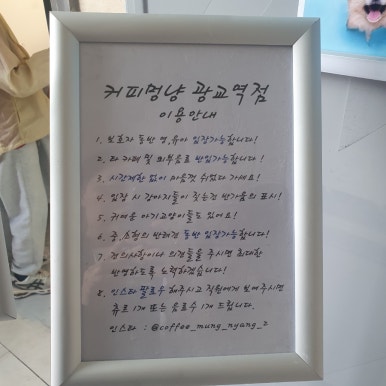 커피멍냥 광교역점
이용안내
1. 보호자 동반 영, 유아 입장가능합니다!
2. 타 카페 및 외부음료 반입가능합니다!
3. 시간제한 없이 마음껏 쉬었다 가세요!
4. 입장 시 강아지들이 짖는건 반가움의 표시!
5. 귀여운 아기고양이들도 있어요!
6. 중, 소형의 반려견 동반 입장가능합니다!
7. 건의사항이나 의견들을 주시면 최대한
반영하도록 노력하겠습니다!
8. 인스타 팔로우 해주시고 직원에게 보여주시면
츄르 1개 또는 음료수 1개 드립니다.
인스타 : @coffee_mung_nyang_2